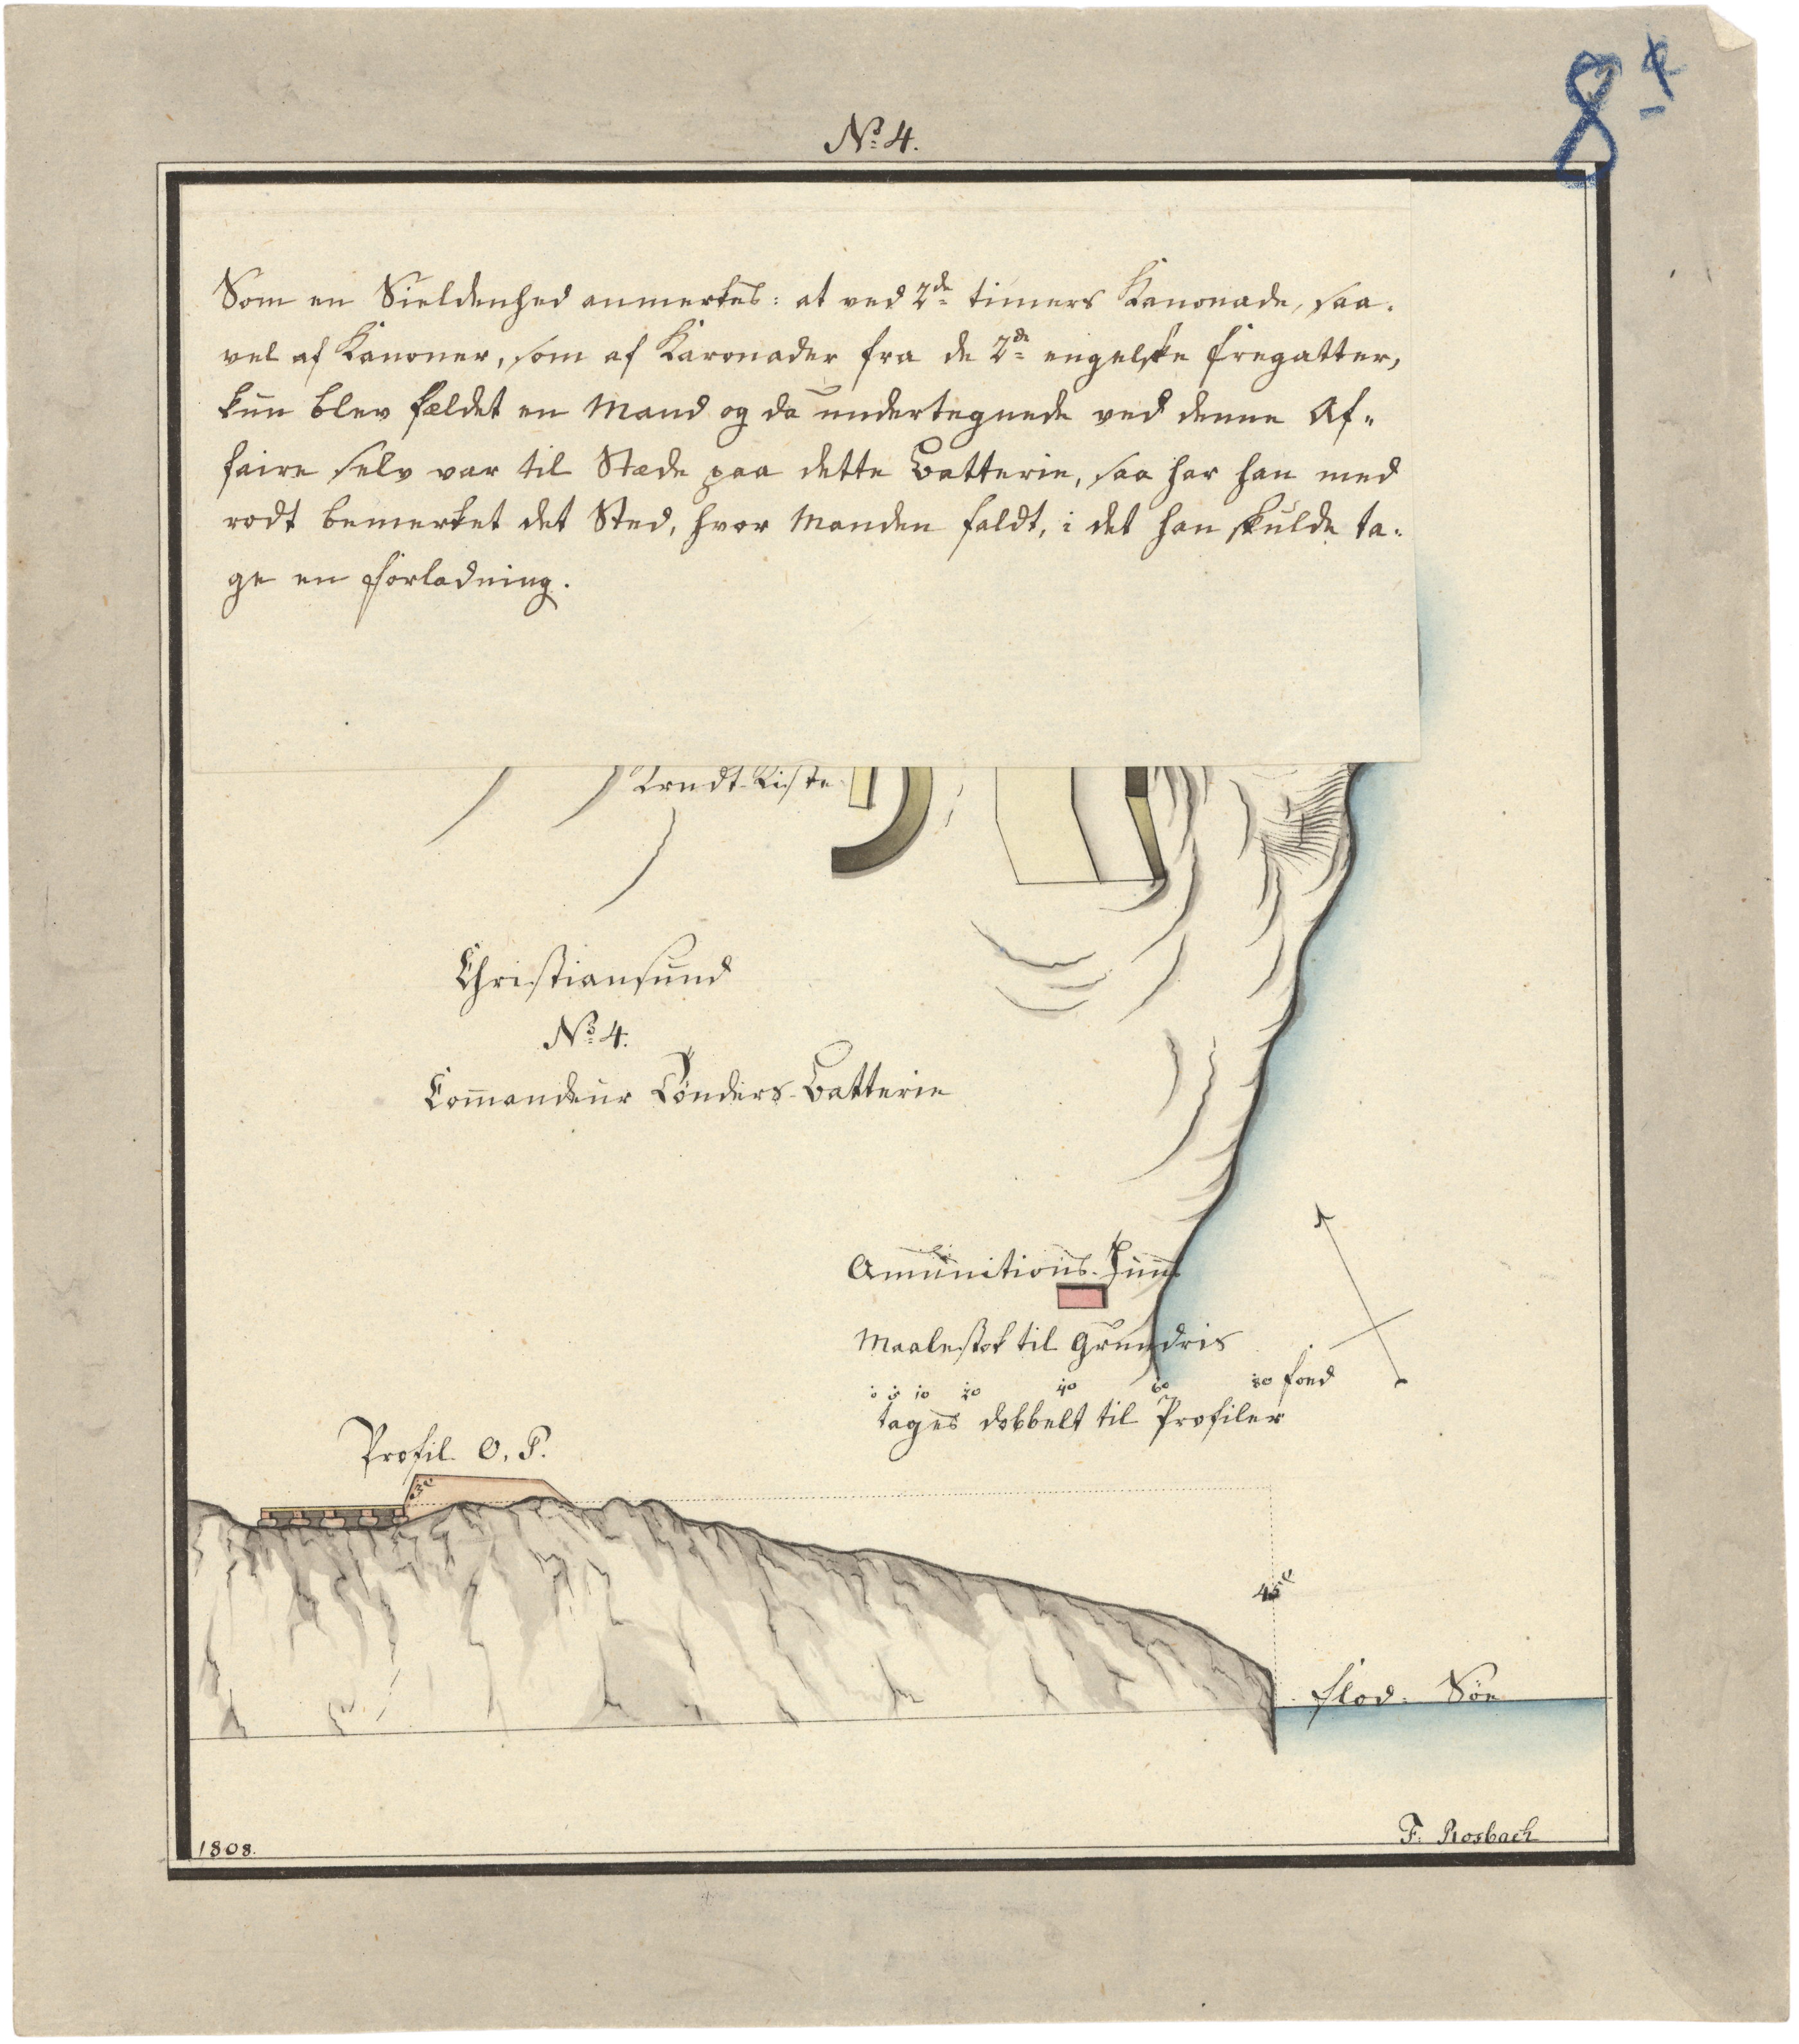 8 4
No 4.
Som en Sieldenhed anmerkes: at ved 2de timers Kanonade, saa-
vel af Kanoner, som af Karonader fra de 2de engelske Fregatter,
kun blev fældet en Mand og da undertegnede ved denne Af-
faire selv var til Stæde paa dette Batterie, saa har han med
rødt bemerket det Sted, hvor Manden faldt, i det han skulde ta-
ge en Forladning.
Krudt-Kiste
Christiansund
No 4.
Commandeur Tønders-Batterie
Amunitions-Huus
Maalestok til Grundris
0 5 10 20 40 60 80 Foed
tages dobbelt til Profiler
Profil O. P.
3
45
Flod-Søe
1808.
F. Rosbach